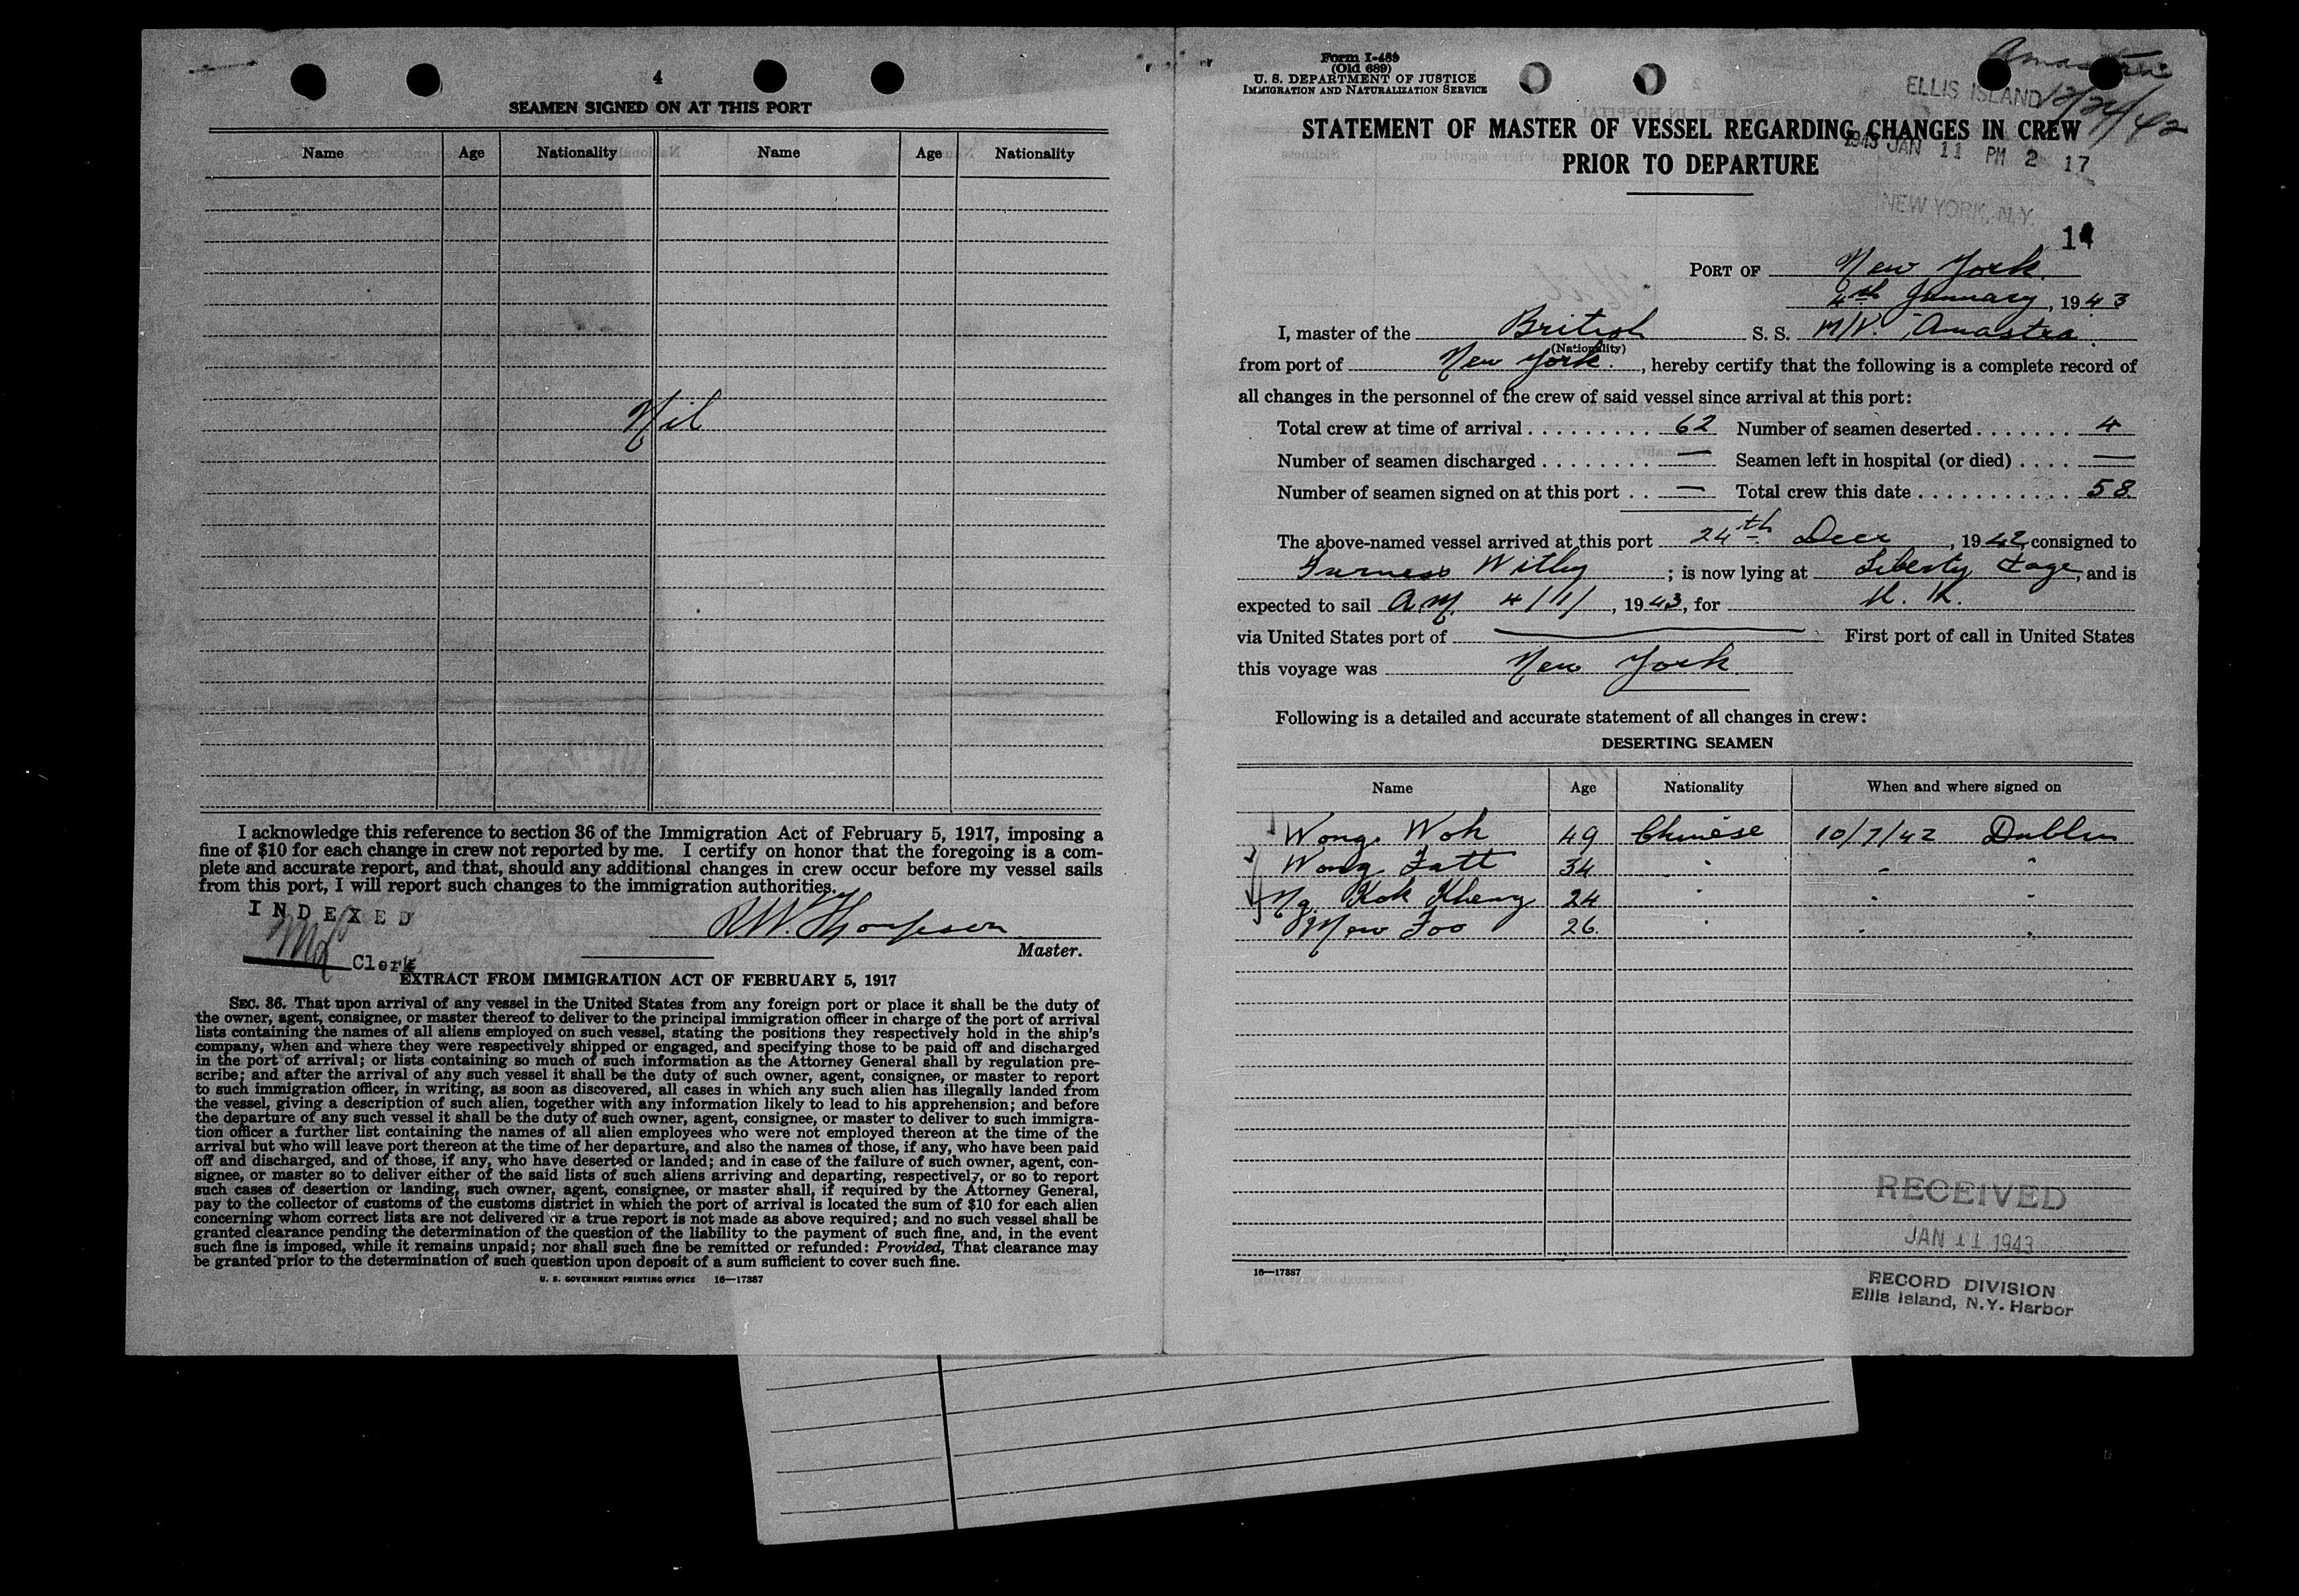 4
SEAMEN SIGNED ON AT THIS PORT
Name Age Nationality Name Age Nationality
Nil
I acknowledge this reference to section 36 of the Immigration Act of February 5, 1917, imposing a
fine of $10 for each change in crew not reported by me. I certify on honor that the foregoing is a com-
plete and accurate report, and that, should any additional changes in crew occur before my vessel sails
from this port, I will report such changes to the immigration authorities.
INDEXED
R.W. Thompson
Master.
Clerk
EXTRACT FROM IMMIGRATION ACT OF FEBRUARY 5, 1917
SEC. 36. That upon arrival of any vessel in the United States from any foreign port or place it shall be the duty of
the owner, agent, consignee, or master thereof to deliver to the principal immigration officer in charge of the port of arrival
lists containing the names of all aliens employed on such vessel, stating the positions they respectively hold in the ship's
company, when and where they were respectively shipped or engaged, and specifying those to be paid off and discharged
in the port of arrival; or lists containing so much of such information as the Attorney General shall by regulation pre-
scribe; and after the arrival of any such vessel it shall be the duty of such owner, agent, consignee, or master to report
to such immigration officer, in writing, as soon as discovered, all cases in which any such alien has illegally landed from
the vessel, giving a description of such alien, together with any information likely to lead to his apprehension; and before
the departure of any such vessel it shall be the duty of such owner, agent, consignee, or master to deliver to such immigra-
tion officer a further list containing the names of all alien employees who were not employed thereon at the time of the
arrival but who will leave port thereon at the time of her departure, and also the names of those, if any, who have been paid
off and discharged, and of those, if any, who have deserted or landed; and in case of the failure of such owner, agent, con-
signee, or master so to deliver either of the said lists of such aliens arriving and departing, respectively, or so to report
such cases of desertion or landing, such owner, agent, consignee, or master shall, if required by the Attorney General,
pay to the collector of customs of the customs district in which the port of arrival is located the sum of $10 for each alien
concerning whom correct lists are not delivered or a true report is not made as above required; and no such vessel shall be
granted clearance pending the determination of the question of the liability to the payment of such fine, and, in the event
such fine is imposed, while it remains unpaid; nor shall such fine be remitted or refunded: Provided, That clearance may
be granted prior to the determination of such question upon deposit of a sum sufficient to cover such fine.
U. S. GOVERNMENT PRINTING OFFICE 16—17387
Form I-489
(Old 689)
U. S. DEPARTMENT OF JUSTICE
IMMIGRATION AND NATURALIZATION SERVICE
ELLIS ISLAND
12/24/42
STATEMENT OF MASTER OF VESSEL REGARDING CHANGES IN CREW
PRIOR TO DEPARTURE
1943 JAN 11 PM 2 17
NEW YORK, N.Y.
PORT OF New York.
4th January, 1943
I, master of the British S. S. M/V. Amastra.
(Nationality)
from port of New York., hereby certify that the following is a complete record of
all changes in the personnel of the crew of said vessel since arrival at this port:
Total crew at time of arrival 62 Number of seamen deserted 4
Number of seamen discharged — Seamen left in hospital (or died) —
Number of seamen signed on at this port — Total crew this date 58
The above-named vessel arrived at this port 24th Decr, 1942, consigned to
Furness Withy; is now lying at Liberty, and is
expected to sail A.M. 4/1/, 1943, for
via United States port of — First port of call in United States
this voyage was New York.
Following is a detailed and accurate statement of all changes in crew:
DESERTING SEAMEN
Name Age Nationality When and where signed on
Wong Woh 49 Chinese 10/7/42 Dublin
Wong Fatt 34 " " "
Ng. Kok Kheng 24 " " "
Mew Foo 26. " " "
RECEIVED
JAN 11 1943
16—17387
RECORD DIVISION
Ellis Island, N.Y. Harbor